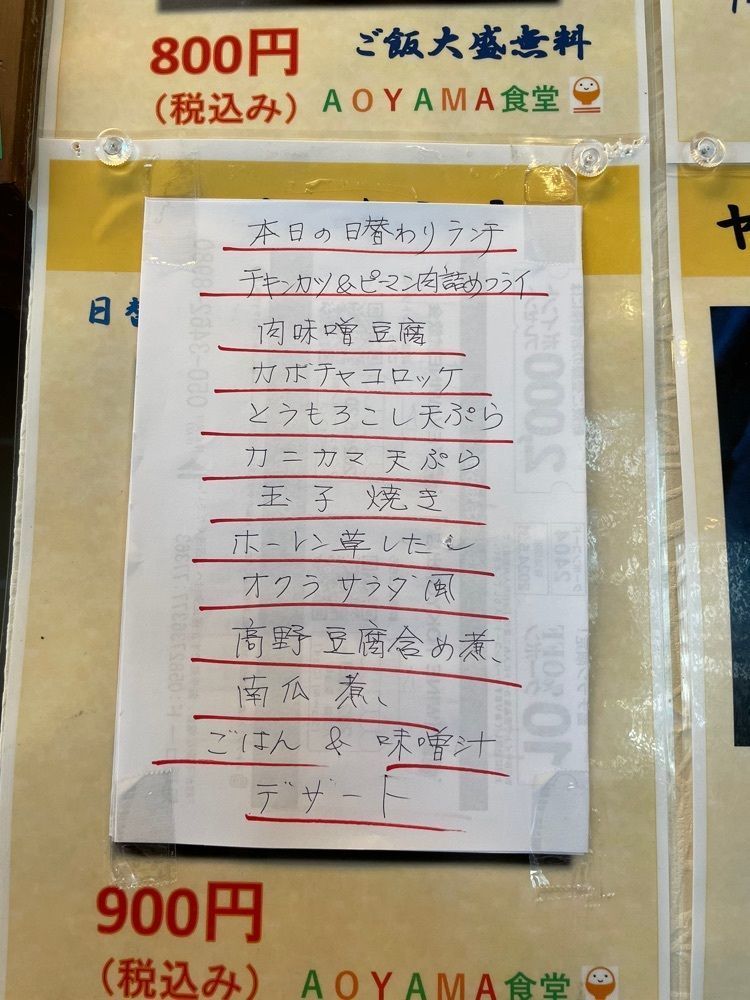 800円
ご飯大盛無料
(税込み)
AOYAMA食堂
本日の日替わりランチ
チキンカツ&ピーマン肉詰めフライ
日替
肉味噌豆腐
カボチャコロッケ
とうもろこし天ぷら
カニカマ天ぷら
玉子焼き
ホーレン草したし
オクラサラダ風
高野豆腐含め煮、
南瓜煮、
ごはん & 味噌汁
デザート
900円
(税込み)
AOYAMA食堂